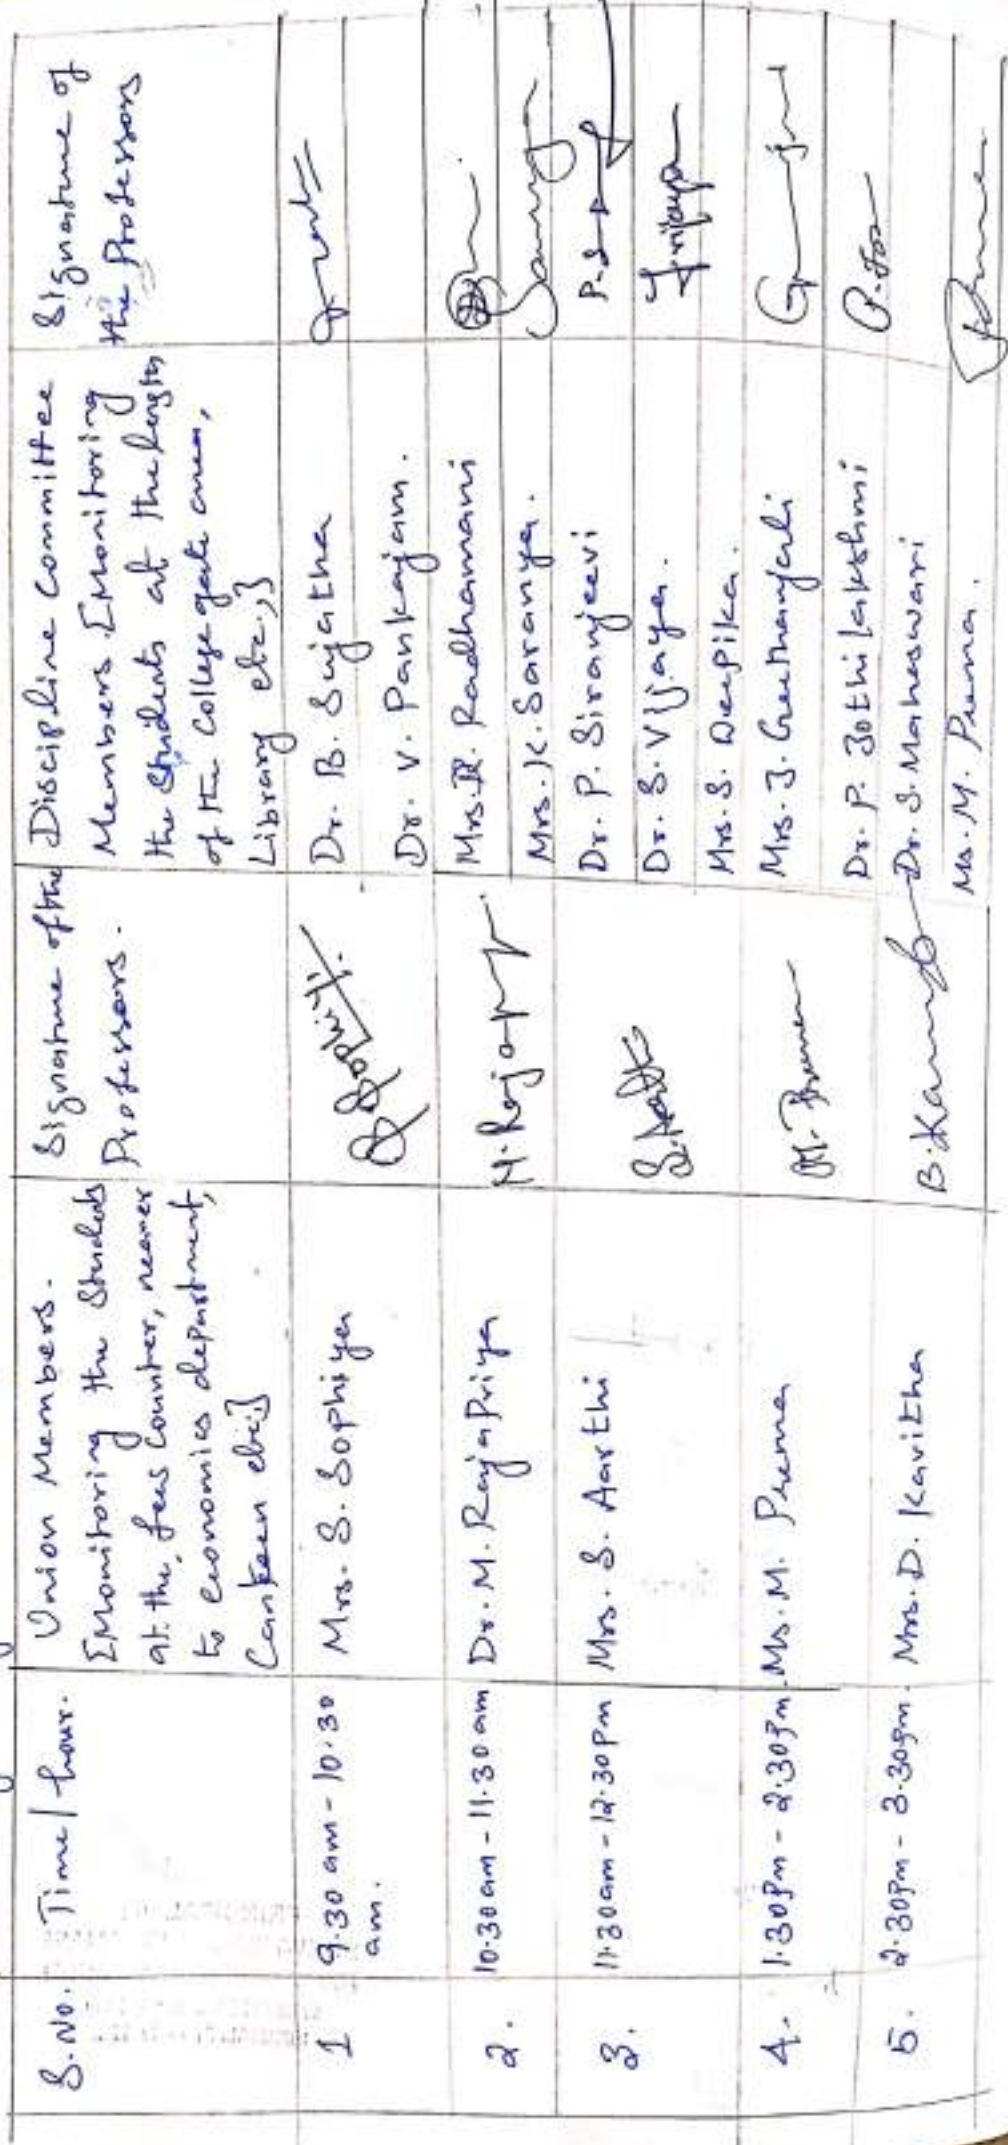 S.No.
Time/hour.
Union Members.
[Monitoring the Students
at the fees counter, nearer
to economics department,
Canteen etc.]
Signature of the
Professors.
Discipline Committee
Members [Monitoring
the Students at the
of the College gate
Library etc,]
Signature of
the Professors
1
9.30 am - 10.30
am.
Mrs. S. Sophiya
S. Sophiya
Dr. B. Sujatha
Dr. V. Pankajam.
2.
10.30am - 11.30am
Dr. M. RajaPriya
Mrs. R. Radhamani
Mrs. K. Saranya.
3.
11.30am - 12.30pm
Mrs. S. Aarthi
Dr. P. Siranjeevi
Dr. S. Vijaya.
Mrs. S. Deepika.
4.
1.30pm - 2.30pm.
Ms. M. Prema
Mrs. J. Geethanjali
Dr. P. Jothilakshmi
5.
2.30pm - 3.30pm.
Mrs. D. Kavitha
Dr. S. Maheswari
Ms. M. Prema.